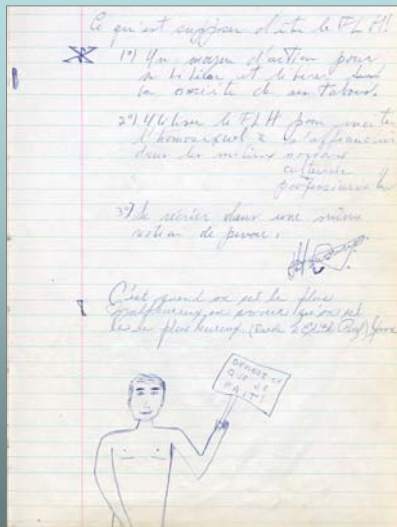 Ce qu'est supposer d'être le F L H!
1º) Un moyen d'action pour
se et libérer
la société de ses tabous.
2º) Utiliser le F L H pour inciter
l'homosexuel à s'affranchir
dans les milieux sociaux
culturels
professionnels
3º) Se récrier dans une même
notion de
C'est quand on est le plus
malheureux en amour qu'on est
le plus heureux (Piaf)
QUE JE
FAIT!